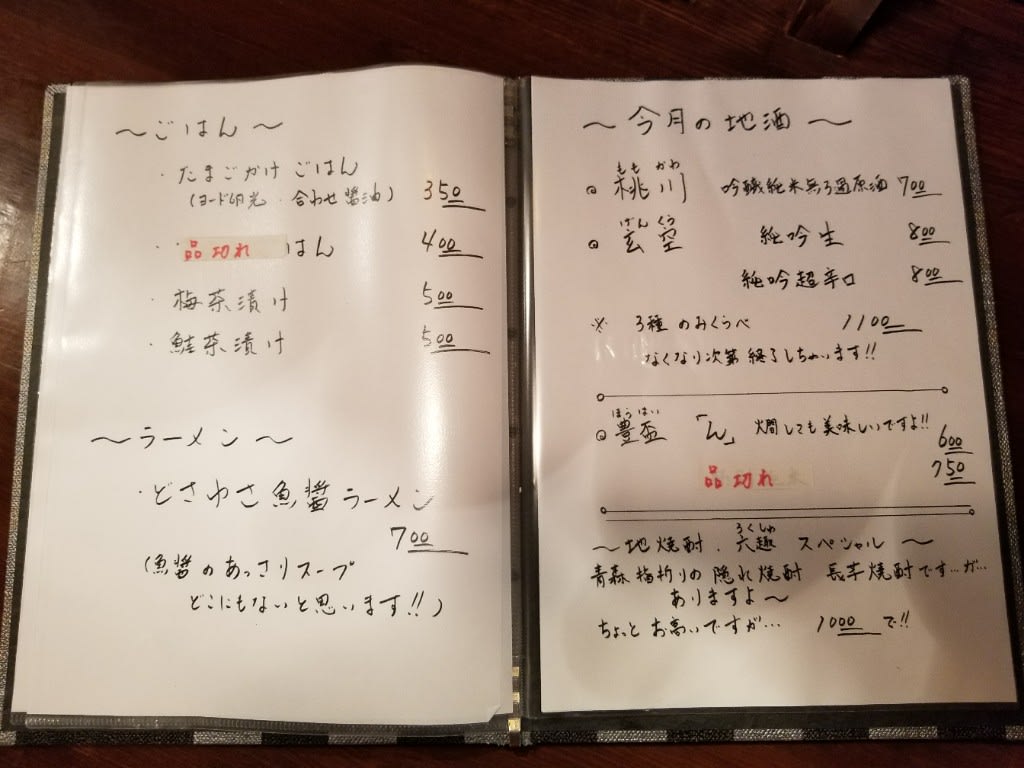 ～ごはん～
・たまごかけ ごはん 350
(ヨード卵光・合わせ醤油)
・ 品切れ はん 400
・梅茶漬け 500
・鮭茶漬け 500
～ラーメン～
・どさゆさ魚醤ラーメン
700
(魚醤のあっさりスープ
どこにもないと思います!!)
～今月の地酒～
もも かわ
◎桃川 吟醸純米無ろ過原酒 700
げん くう
◎玄空 純吟生 800
純吟超辛口 800
※ 3種のみくらべ 1100
なくなり次第終了しちゃいます!!
ほうはい
◎豊盃 「ん」 燗しても美味しいですよ!! 600
品切れ 750
ろくしゅ
～地焼酎・六趣 スペシャル～
青森 指折りの 隠れ焼酎 長芋焼酎です…が…
ありますよ～
ちょっと お高いですが… 1000 で!!